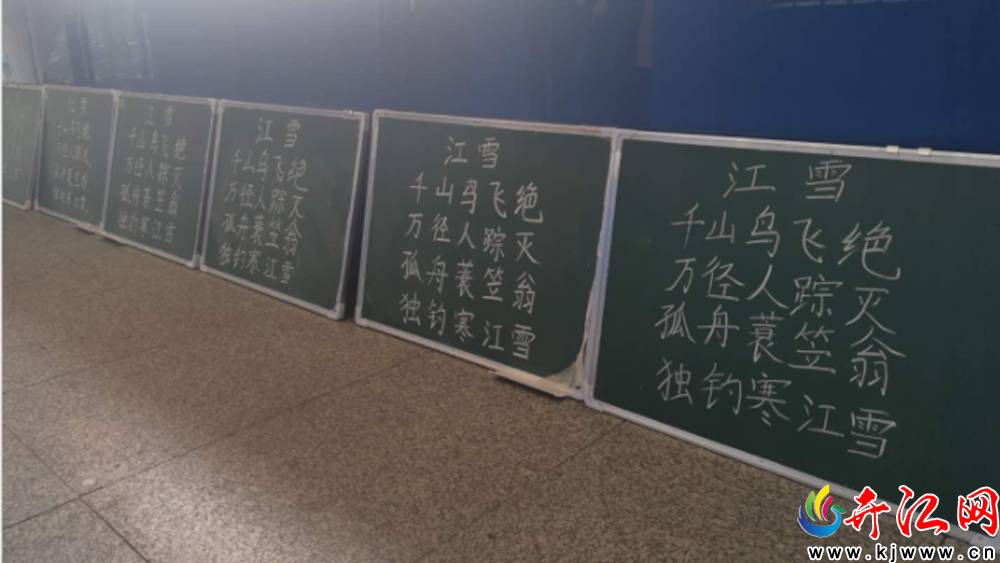 江雪
千山鸟飞绝
万径人踪灭
孤舟蓑笠翁
独钓寒江雪
江雪
千山鸟飞绝
万径人踪灭
孤舟蓑笠翁
独钓寒江雪
江雪
千山鸟飞绝
万径人踪灭
孤舟蓑笠翁
独钓寒江雪
江雪
千山鸟飞绝
万径人踪灭
孤舟蓑笠翁
独钓寒江雪
江雪
千山鸟飞绝
万径人踪灭
孤舟蓑笠翁
独钓寒江雪
开江网
www.kjwww.cn